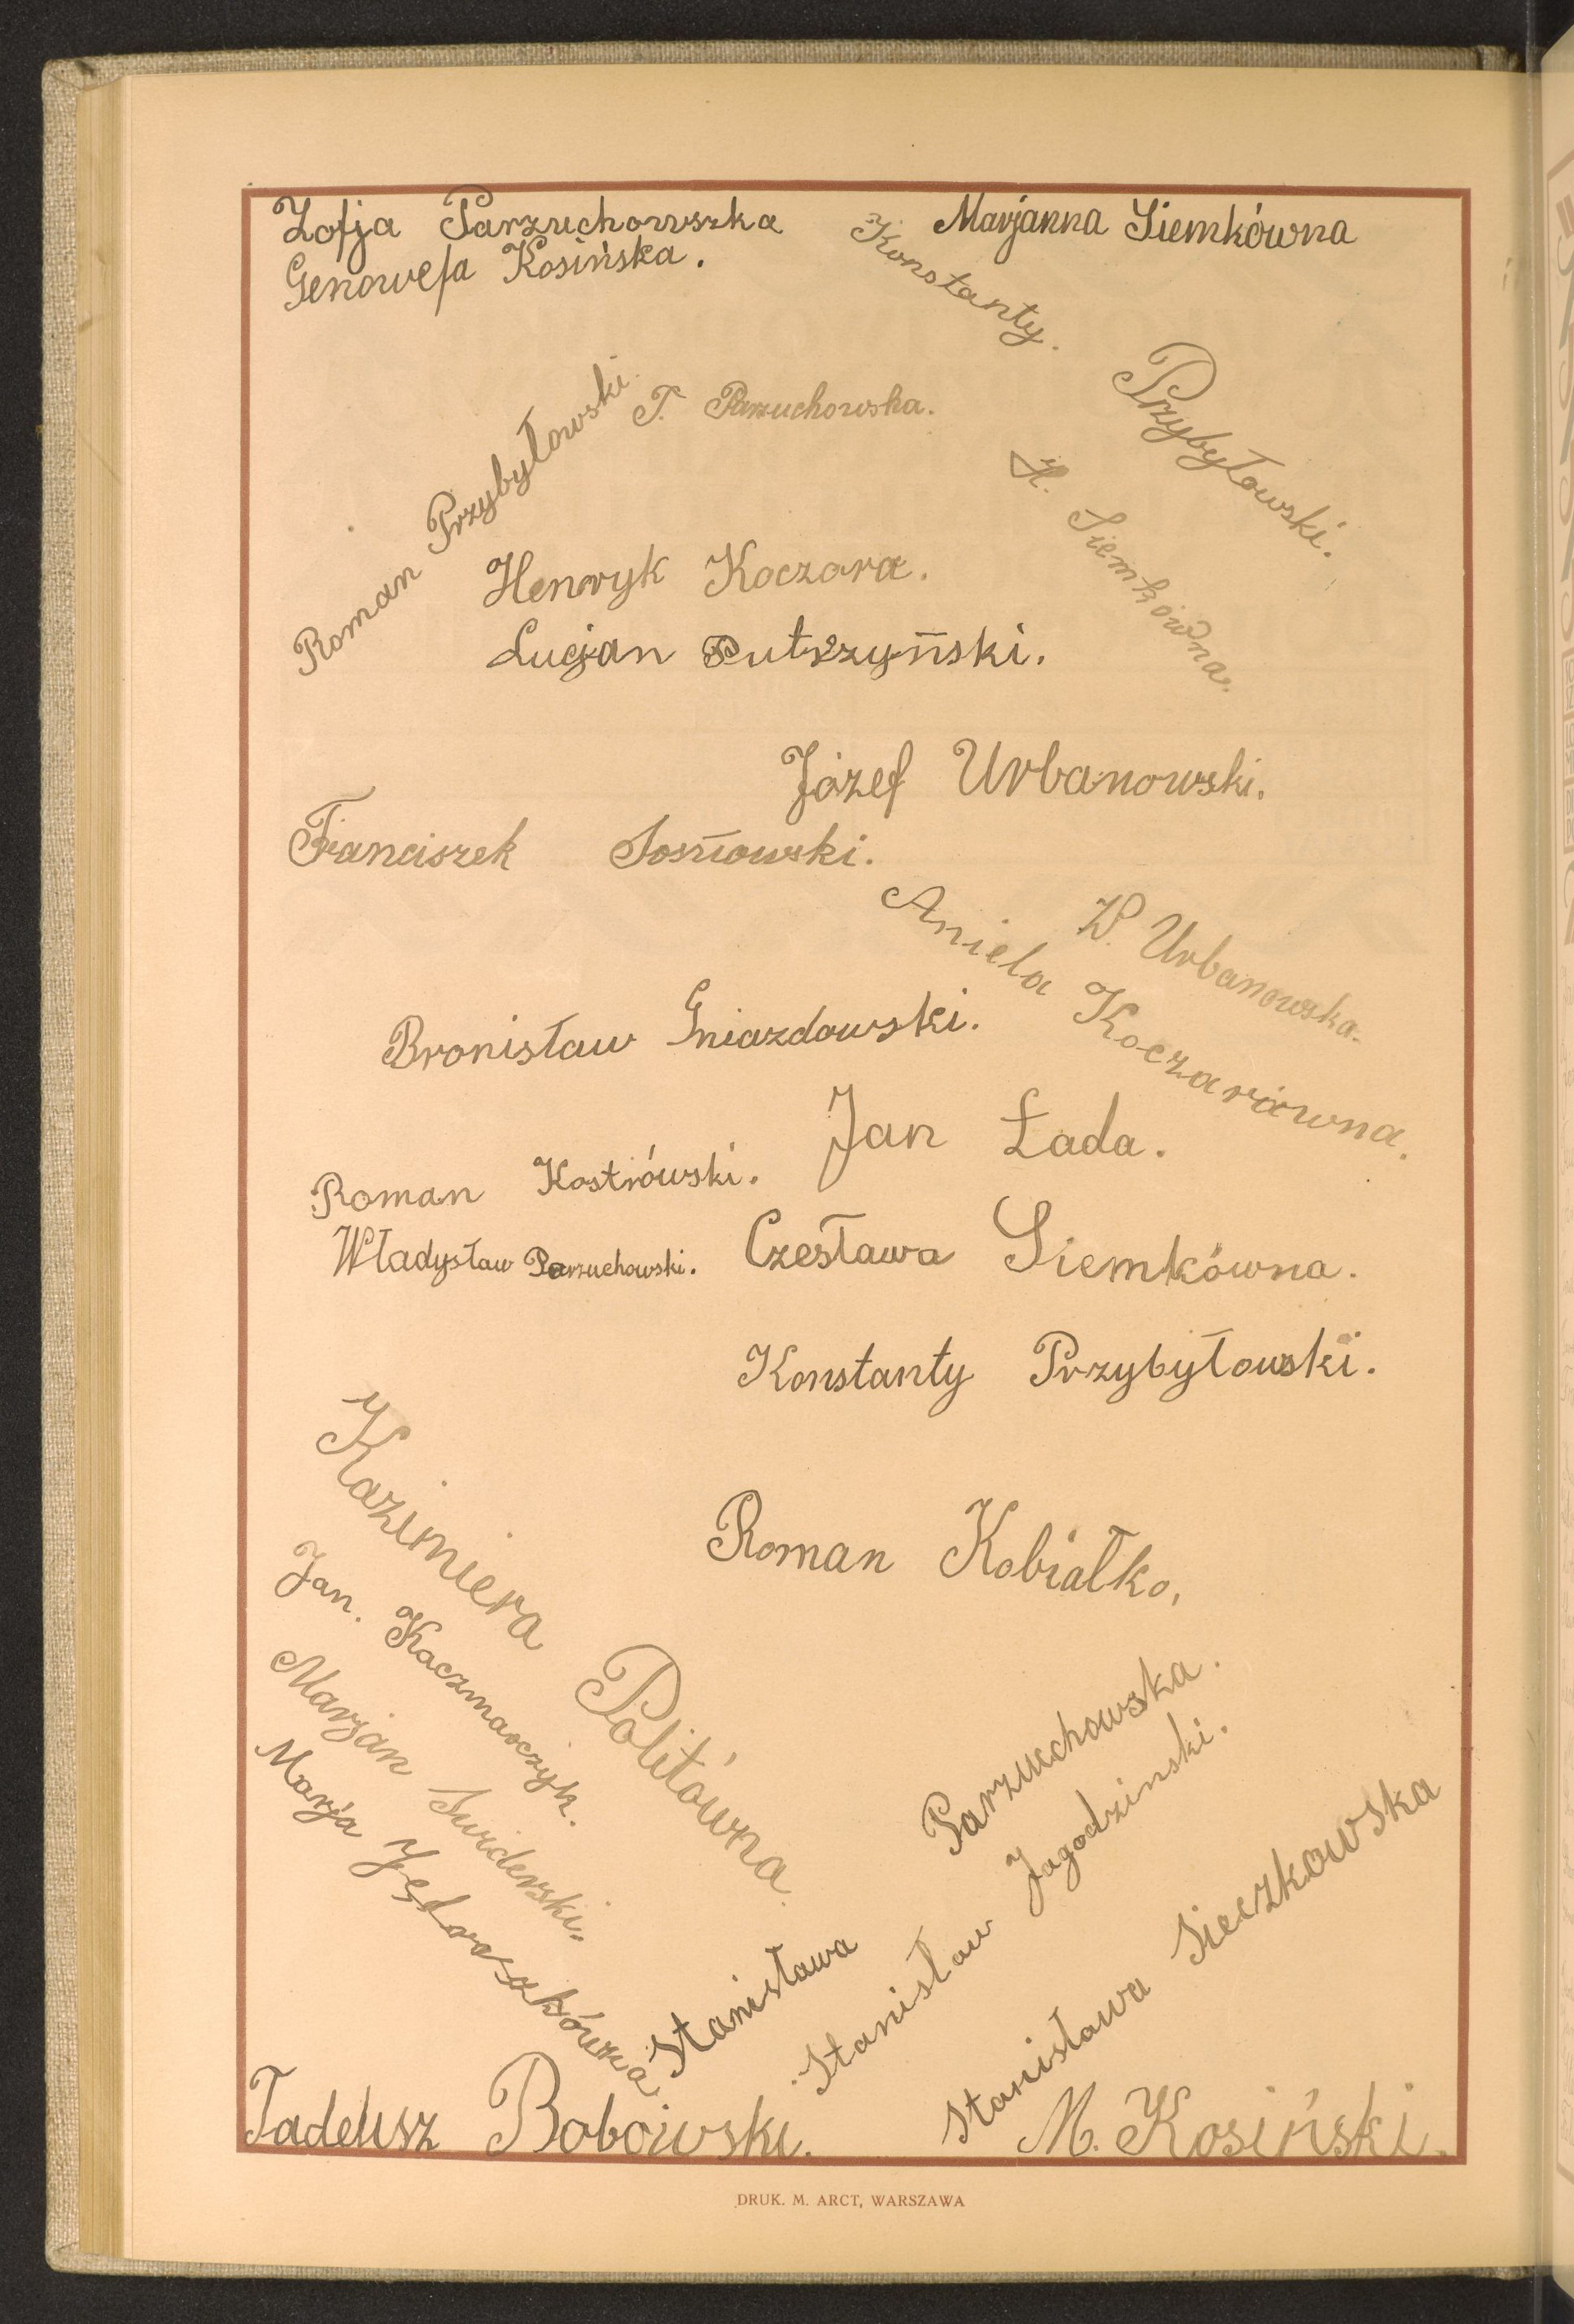 Zofja Parzuchowszka
Marjanna Siemkówna
Genowefa Kosińska.
Konstanty. Przybyłowski.
Roman Przybyłowski.
T. Parzuchowska.
H. Siemkówna.
Henryk Koczara.
Lucjan Putrzyński.
Józef Urbanowski.
Franciszek Sosnowski.
W. Urbanowska.
Aniela Koczarówna.
Bronisław Gniazdowski.
Jan Łada.
Roman Kostrówski.
Władysław Parzuchowski.
Czesława Siemkówna.
Konstanty Przybyłowski.
Kazimiera Politówna.
Roman Kobiałko,
Jan. Kaczmarczyk.
Marjan Swiderski.
Marja Jędraszkówna
Stanisława Parzuchowska.
Stanisław Jagodzinski.
Stanisława Sieczkowska
Tadeusz Bobowski.
M. Kosiński.
DRUK. M. ARCT, WARSZAWA